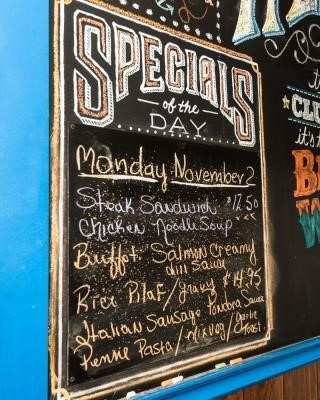 SPECIALS
of the
DAY
Monday November 2
Steak Sandwich $12.50
Chicken Noodle Soup
Buffet: Salmon Creamy
dill sauce
Rice Pilaf/gravy $14.95
Italian Sausage Pandora Sauce
Pennie Pasta/mixveg/Garlic
Toast
CLU
it's